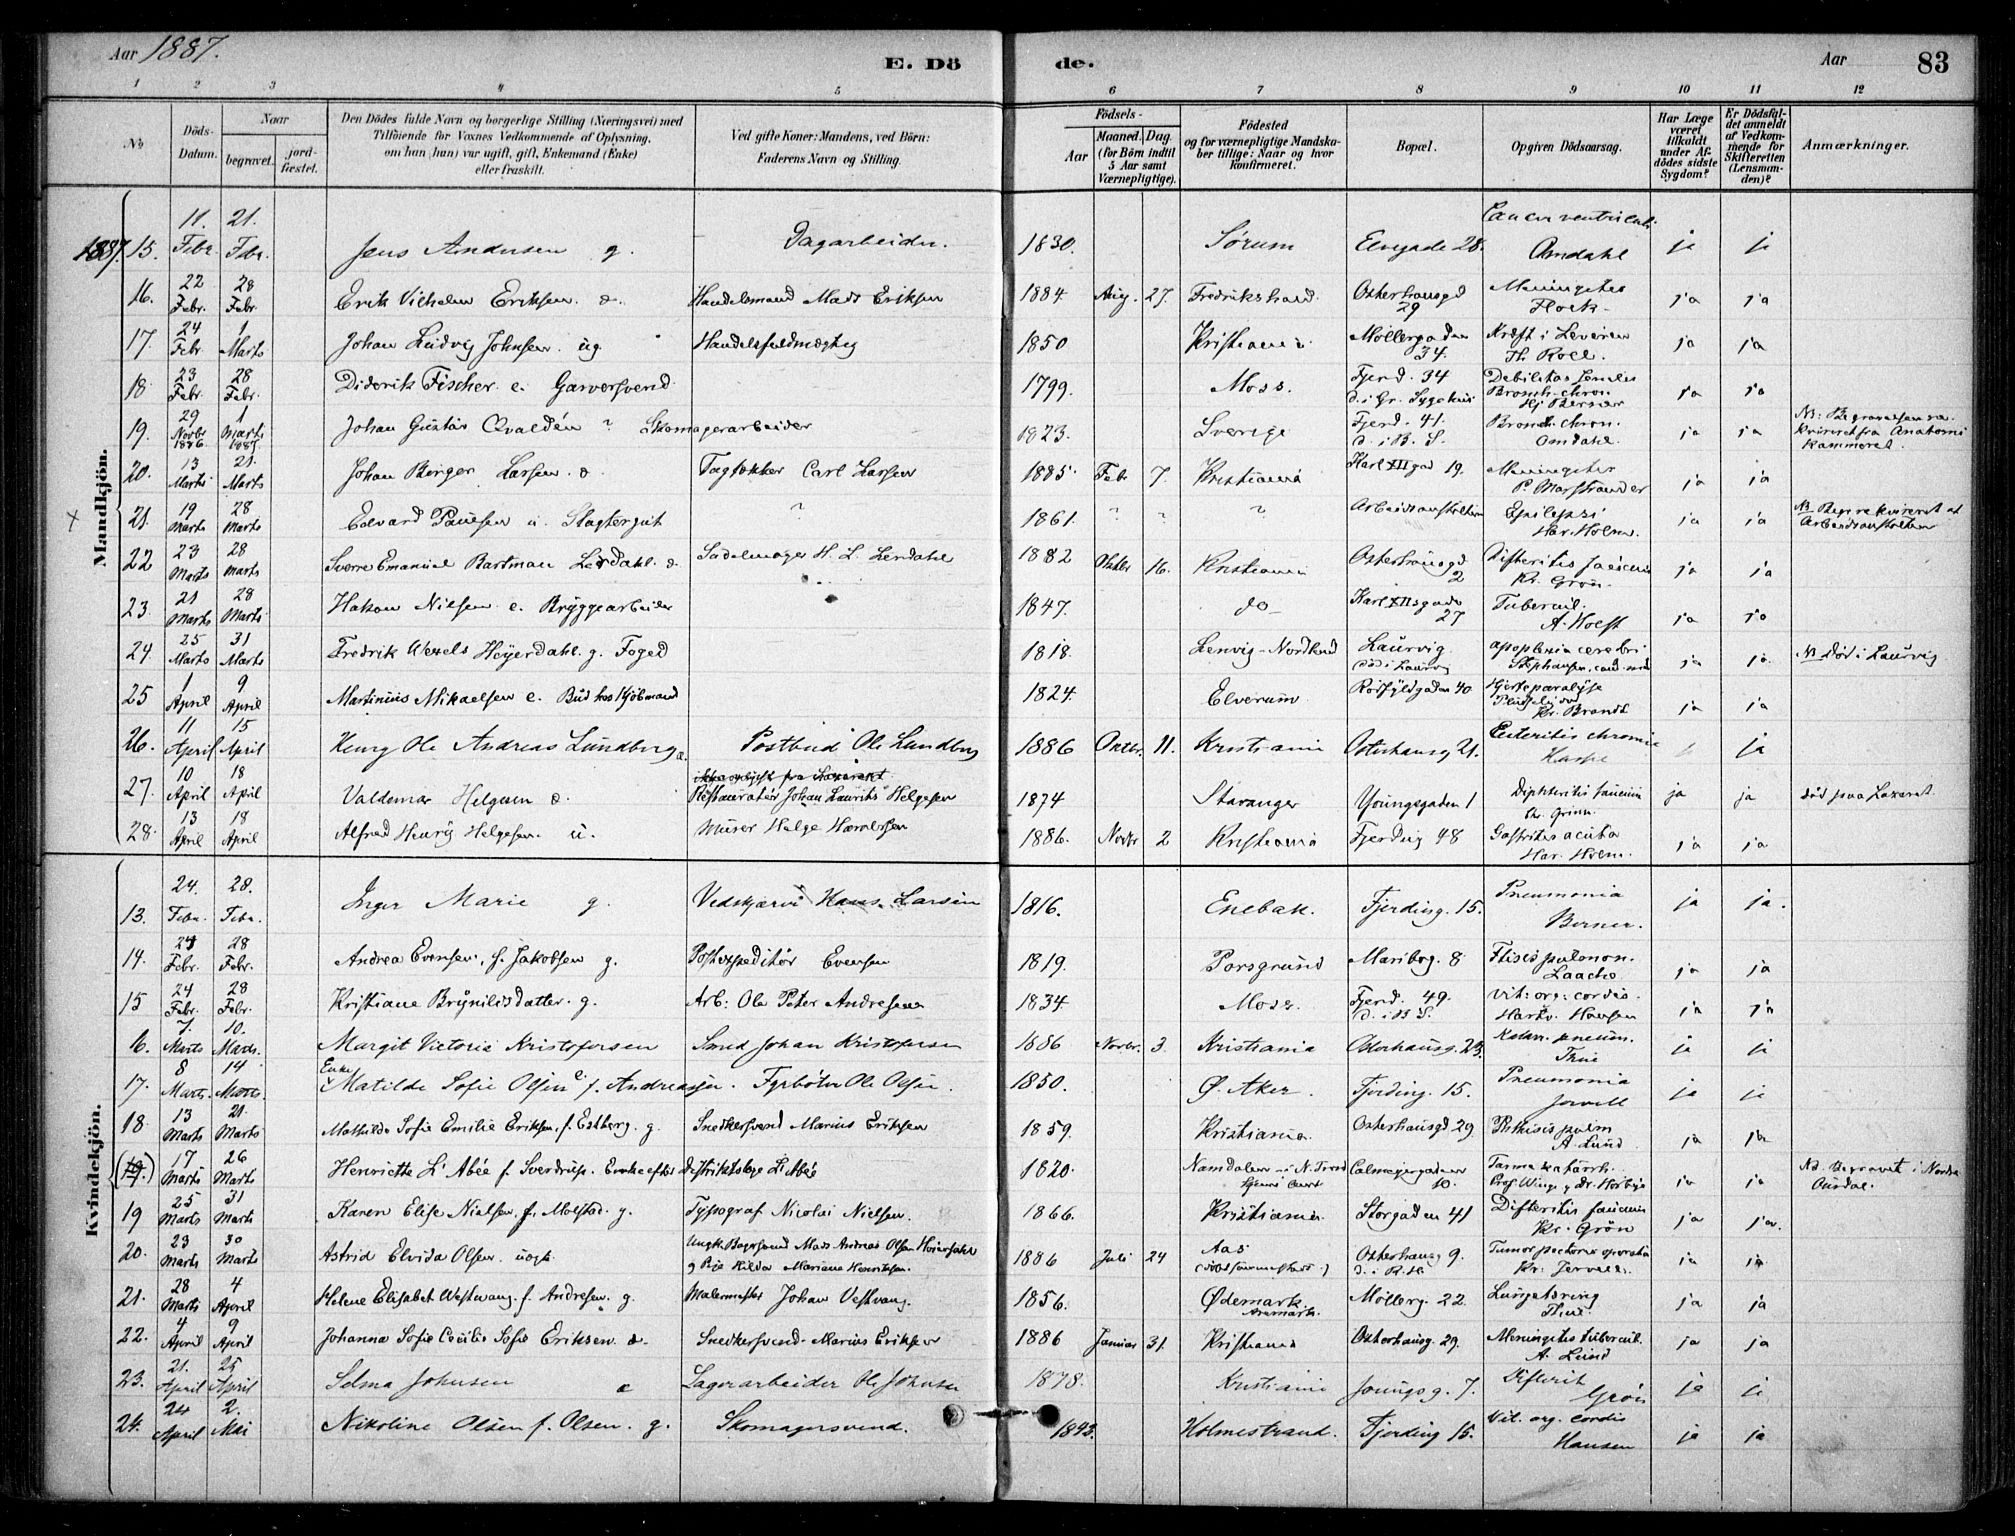 Aar 1887.
E. Dö de.
Aar 83
1 2 3 4 5 6 7 8 9 10 11 12
No
Döds-Datum.
Naar
begravet.
jord-fæstet.
Den Dödes fulde Navn og borgerlige Stilling (Næringsvei) med
Tilföiende for Voxnes Vedkommende af Oplysning,
om han (hun) var ugift, gift, Enkemand (Enke)
eller fraskilt.
Ved gifte Koner: Mandens, ved Börn:
Faderens Navn og Stilling.
Födsels-
Aar
Maaned. Dag.
(for Börn indtil
5 Aar samt
Værnepligtige).
Födested
og for værnepligtige Mandska-
ber tillige: Naar og hvor
konfirmeret.
Bopæl.
Opgiven Dödsaarsag.
Har Læge
været
tilkaldt
under Af-
dödes sidste
Sygdom?
Er Dödsfal-
det anmeldt
af Vedkom-
mende for
Skifteretten
(Lensman-
den)?
Anmærkninger.
Mandkjön.
1887. 15. 11. Febr. 21. Febr. Jens Andersen g. Dagarbeider. 1830. Sørum Elvegade 28. Cancer ventriculi Omdahl ja ja
16. 22 Febr. 28 Febr. Erik Vilhelm Eriksen. Handelsmand Mads Eriksen 1884. Aug. 27. Fredrikshald. Osterhausgd 29 Meningites ja ja
17. 24 Febr 1 Marts Johan Ludvig Johnsen. ug. Handelsfuldmægtig 1850 Kristiania Møllergaden 34. Kræft i Leveren Th. Roll. ja ja
18. 23 Febr. 28 Febr. Diderik Fischer. e. Garversvend 1799. Moss. Fjerd. 34 D. i Gr. Sygehus Debilitas seniles Bronch. chron. Hj Berner ja ja
19. 29 Novbr 1886. 1 Marts Johan Gustav Qvaldén ? Skomagerarbeider 1823. Sverige Fjerd. 41. D. i B. S. Bronch. chron. Omdahl. ja ja NB: Begravelsen rekvireret fra Anatomi kammeret.
20. 13 Marts 21. Marts Johan Berger Larsen. Tagtækker Carl Larsen 1885. Febr 7. Kristiania Karl XIIgad 19. Meningites P. Marstrander ja ja
21. 19 Marts 28 Marts Edvard Paulsen u. Slagtergut ? 1861. " " ? Arbeidsanstalten Epilepsi Har. Holm. ja ja NB Begr. rekvireret af Arbeidsanstalten
22 23 Marts 28 Marts Sverre Emanuel Bartman Lerdahl. Sadelmager H. L. Lerdahl 1882 Oktbr 16. Kristiania Osterhausgd 2 Difteritis faucium Kr. Grøn. ja ja
23. 21 Marts 28 Marts Hakon Nielsen e. Bryggearbeider 1847. do Karl XIIsgade 27 Tubercul. A. Holst ja ja
24. 25 Marts 31 Marts Fredrik Wexels Heyerdahl. g. Foged 1818. Lenvig - Nordland Laurvig. Død i Laurvig apoplexia cerebri Stephansen, cand. med ja ja. NB død i Laurvig
25 1 April 9 April Martinius Mikaelsen e. Bud hos Kjøbmand 1824. Elverum Rosfyldgaden 40 Hjerteparalyse Pludselig død Kr. Brandt ja ja
26. 11 April 15 April Henry Ole Andreas Lundberg. Postbud Ole Lundberg 1886 Oktbr. 11. Kristiania Osterhausg 21. Enteritis chronic ja
27. 10 April 18 April Valdemar Helgesen Restauratør Johan Laurits Helgesen 1874 Stavanger Youngsgaden 1 Diphteritis faucium Chr. Grønn. ja ja død paa Lazaret
28. 13 April 18 April Alfred Henry Helgesen. u. Murer Helge Haraldsen 1886. Novbr 2 Kristiania Fjerding 48 Gastritis acuta Har. Holm. ja ja
Kvindekjön.
13. 24. Febr. 28. Febr. Inger Marie g. Hans Larsen 1816. Enebak. Fjerding. 15. Pneumonia Berner. ja ja.
14. Febr. 28 Febr. Andrea Evensen, f. Jakobsen g. Postexpeditør Evensen 1819. Porsgrund Maribog. 8 Ftisis pulmon. Laache ja ja
15 24 Febr. 28 Febr. Kristiane Brynildsdatter. g. Arb: Ole Peter Andresen 1834. Moss. Fjerd. 49. D. i B S. Vit: org: cordis. Hartv. Hansen ja ja
16. 7. Marts 10. Marts. Margit Victoria Kristofersen Smed Johan Kristofersen 1886 Novbr. 3. Kristiania Osterhausg. 23. Katarr. pneum. Thue ja ja
17. 8 Marts. 14 Marts. Enke Matilde Sofie Olsen f. Andreassen. Fyrbøter Ole Olsen. 1850. Ø. Aker. Fjerding. 15. Pneumonia Jervell ja ja
18 13 Marts 21. Marts Mathilde Sofie Emilie Eriksen, f. Estberg. g. Snedkersvend Marius Eriksen 1859. Kristiania. Osterhausgd 29 Phthisis pulm A. Lund. ja ja
(19.) 17 Marts 26 Marts Henriette L'Abée f. Sverdrup. Enke efter distriktslæge L'Abée 1820. Namdalen - i N. Calmeyergaden 10. Prof Winge og Dr. ja ja NB. Begravet i Nordre
19 25 Marts 31 Marts Karen Elise Nielsen, f. Molstad. g. Typograf Nicolai Nielsen. 1866. Kristiania. Storgaden 41 Difteritis faucium Kr. Grøn ja ja.
20. 23 Marts 30 Marts Astrid Elvida Olsen. uægte Ungk. Bagersvend Mads Andreas Olsen og Pige Hilda Mariane Henriksen. 1886 Juli 24 Aas Osterhausg 9. D. i R. H. Tumor pectoris operatio Kr. Jervell. ja ja
21. 28 Marts 4 April Helene Elisabet Westwang. f. Andresen. g. Malermester Johan Vestvang. 1856. Ødemark Aremark. Møllerg. 22. Lungetæring Thue. ja ja
22. 4 April 9 April Johanna Sofie Cecilie Sofie Eriksen Snedkersvend Marius Eriksen 1886 Januar 31. Kristiania Osterhausg. 29. Meningites tubercul. A. Lund ja ja
23. 21. April 25 April Selma Johnsen Lagerarbeider Ole Johnsen 1878. Kristiania Youngsg. 7. Difterit Grøn ja ja
24. 24 April 2. Mai Nikoline Olsen f. Olsen. g. Skomagersvend. 1843. Holmestrand. Fjerding 15. Vit. org. cordis Hansen ja ja